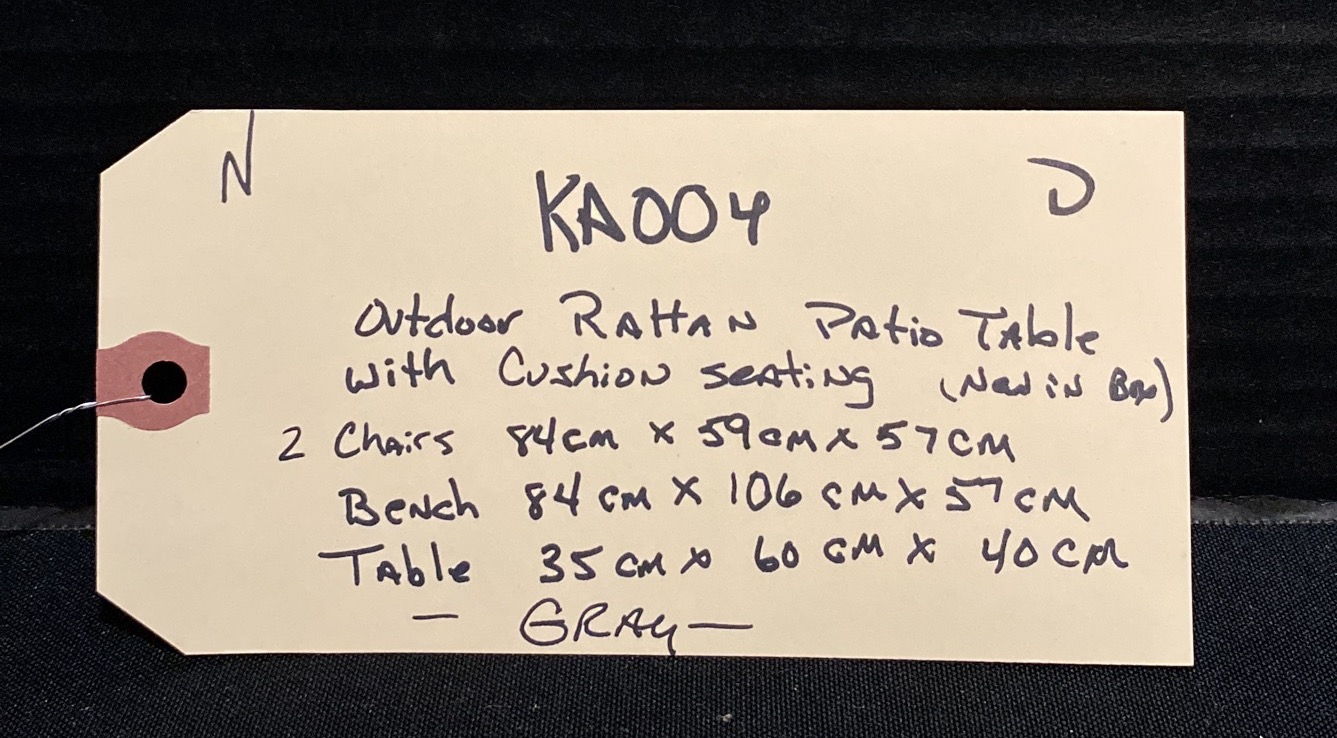 N
KA004
D
Outdoor Rattan Patio Table
with Cushion seating (New in Box)
2 Chairs 84cm x 59cm x 57cm
Bench 84 cm x 106 cm x 57cm
Table 35cm x 60 cm x 40cm
- GRAY -